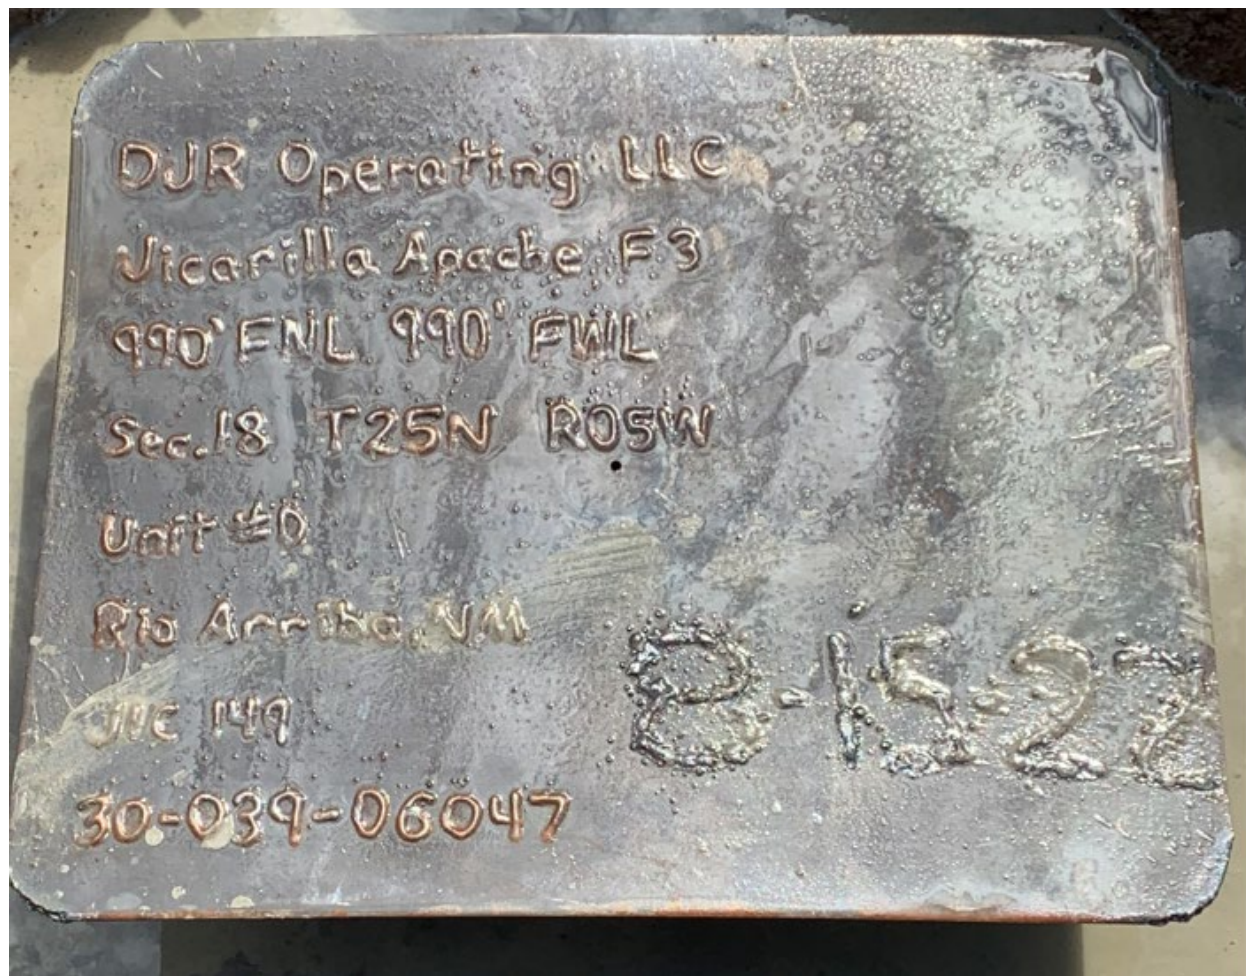 DJR Operating LLC
Jicarilla Apache F 3
990' FNL 990' FWL
Sec.18 T25N R05W
Unit #D
Rio Arriba, NM
JIC 149
30-039-06047
8-15-22